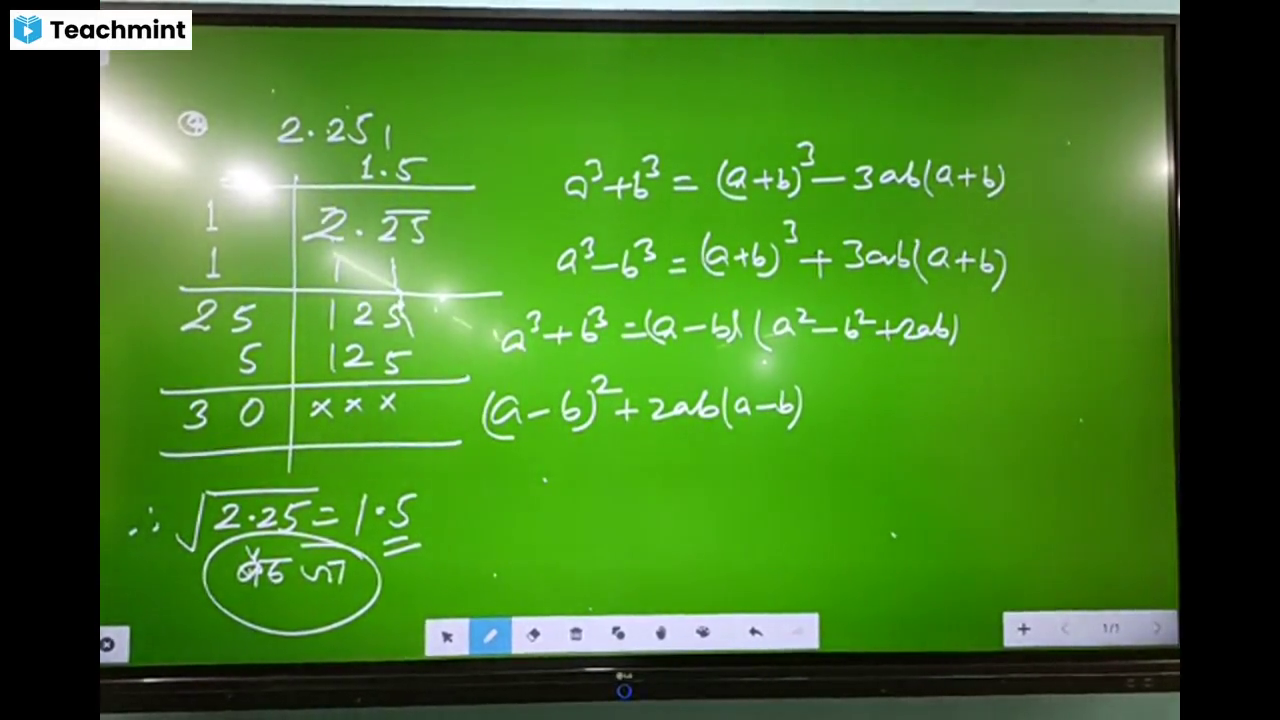 Teachmint
2.25
1.5
1 2.25
1 1 1
25 125
5 125
30 ×××
∴ √2.25 = 1.5
a³+b³ = (a+b)³ - 3ab(a+b)
a³-b³ = (a+b)³ + 3ab(a+b)
a³+b³ = (a-b) (a²-b²+2ab)
(a-b)²+2ab(a-b)
1/1
LG